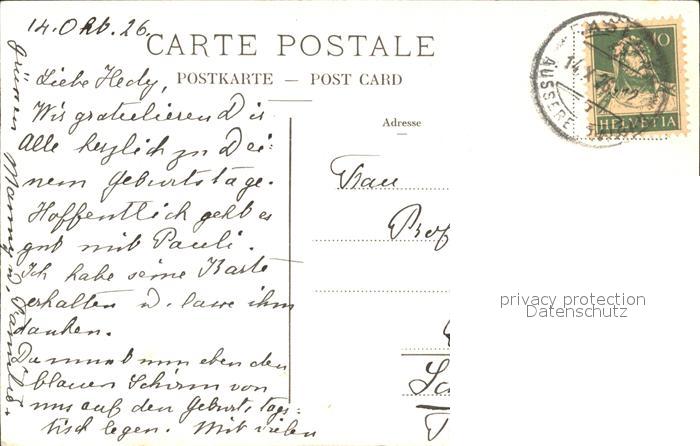 14. Okt. 26.
CARTE POSTALE
POSTKARTE — POST CARD
Liebe Hedy,
Wir gratulieren Dir
Alle herzlich zu Dei-
nem Geburtstage.
Hoffentlich geht es
gut mit Pauli.
Ich habe seine Karte
erhalten u. lasse ihm
danken.
Du musst nun eben den
blauen Schirm von
uns auf den Geburtstags-
tisch legen. Mit vielen
Grüssen
Adresse
Frau
Prof
HELVETIA
10
AUSSERE
privacy protection
Datenschutz